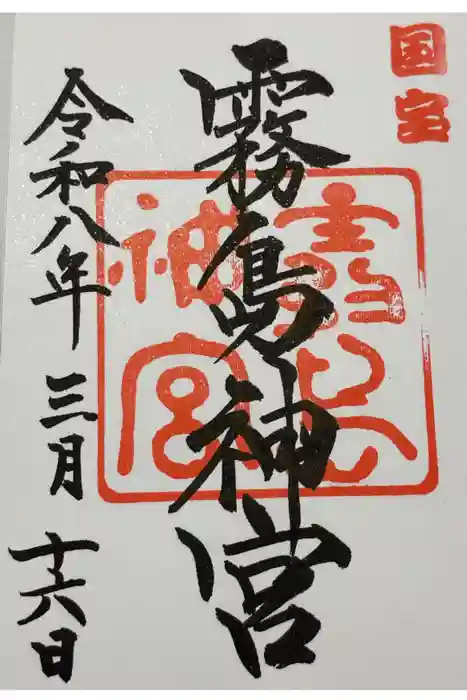 国宝
霧島神宮
霧島神宮
令和八年三月十六日